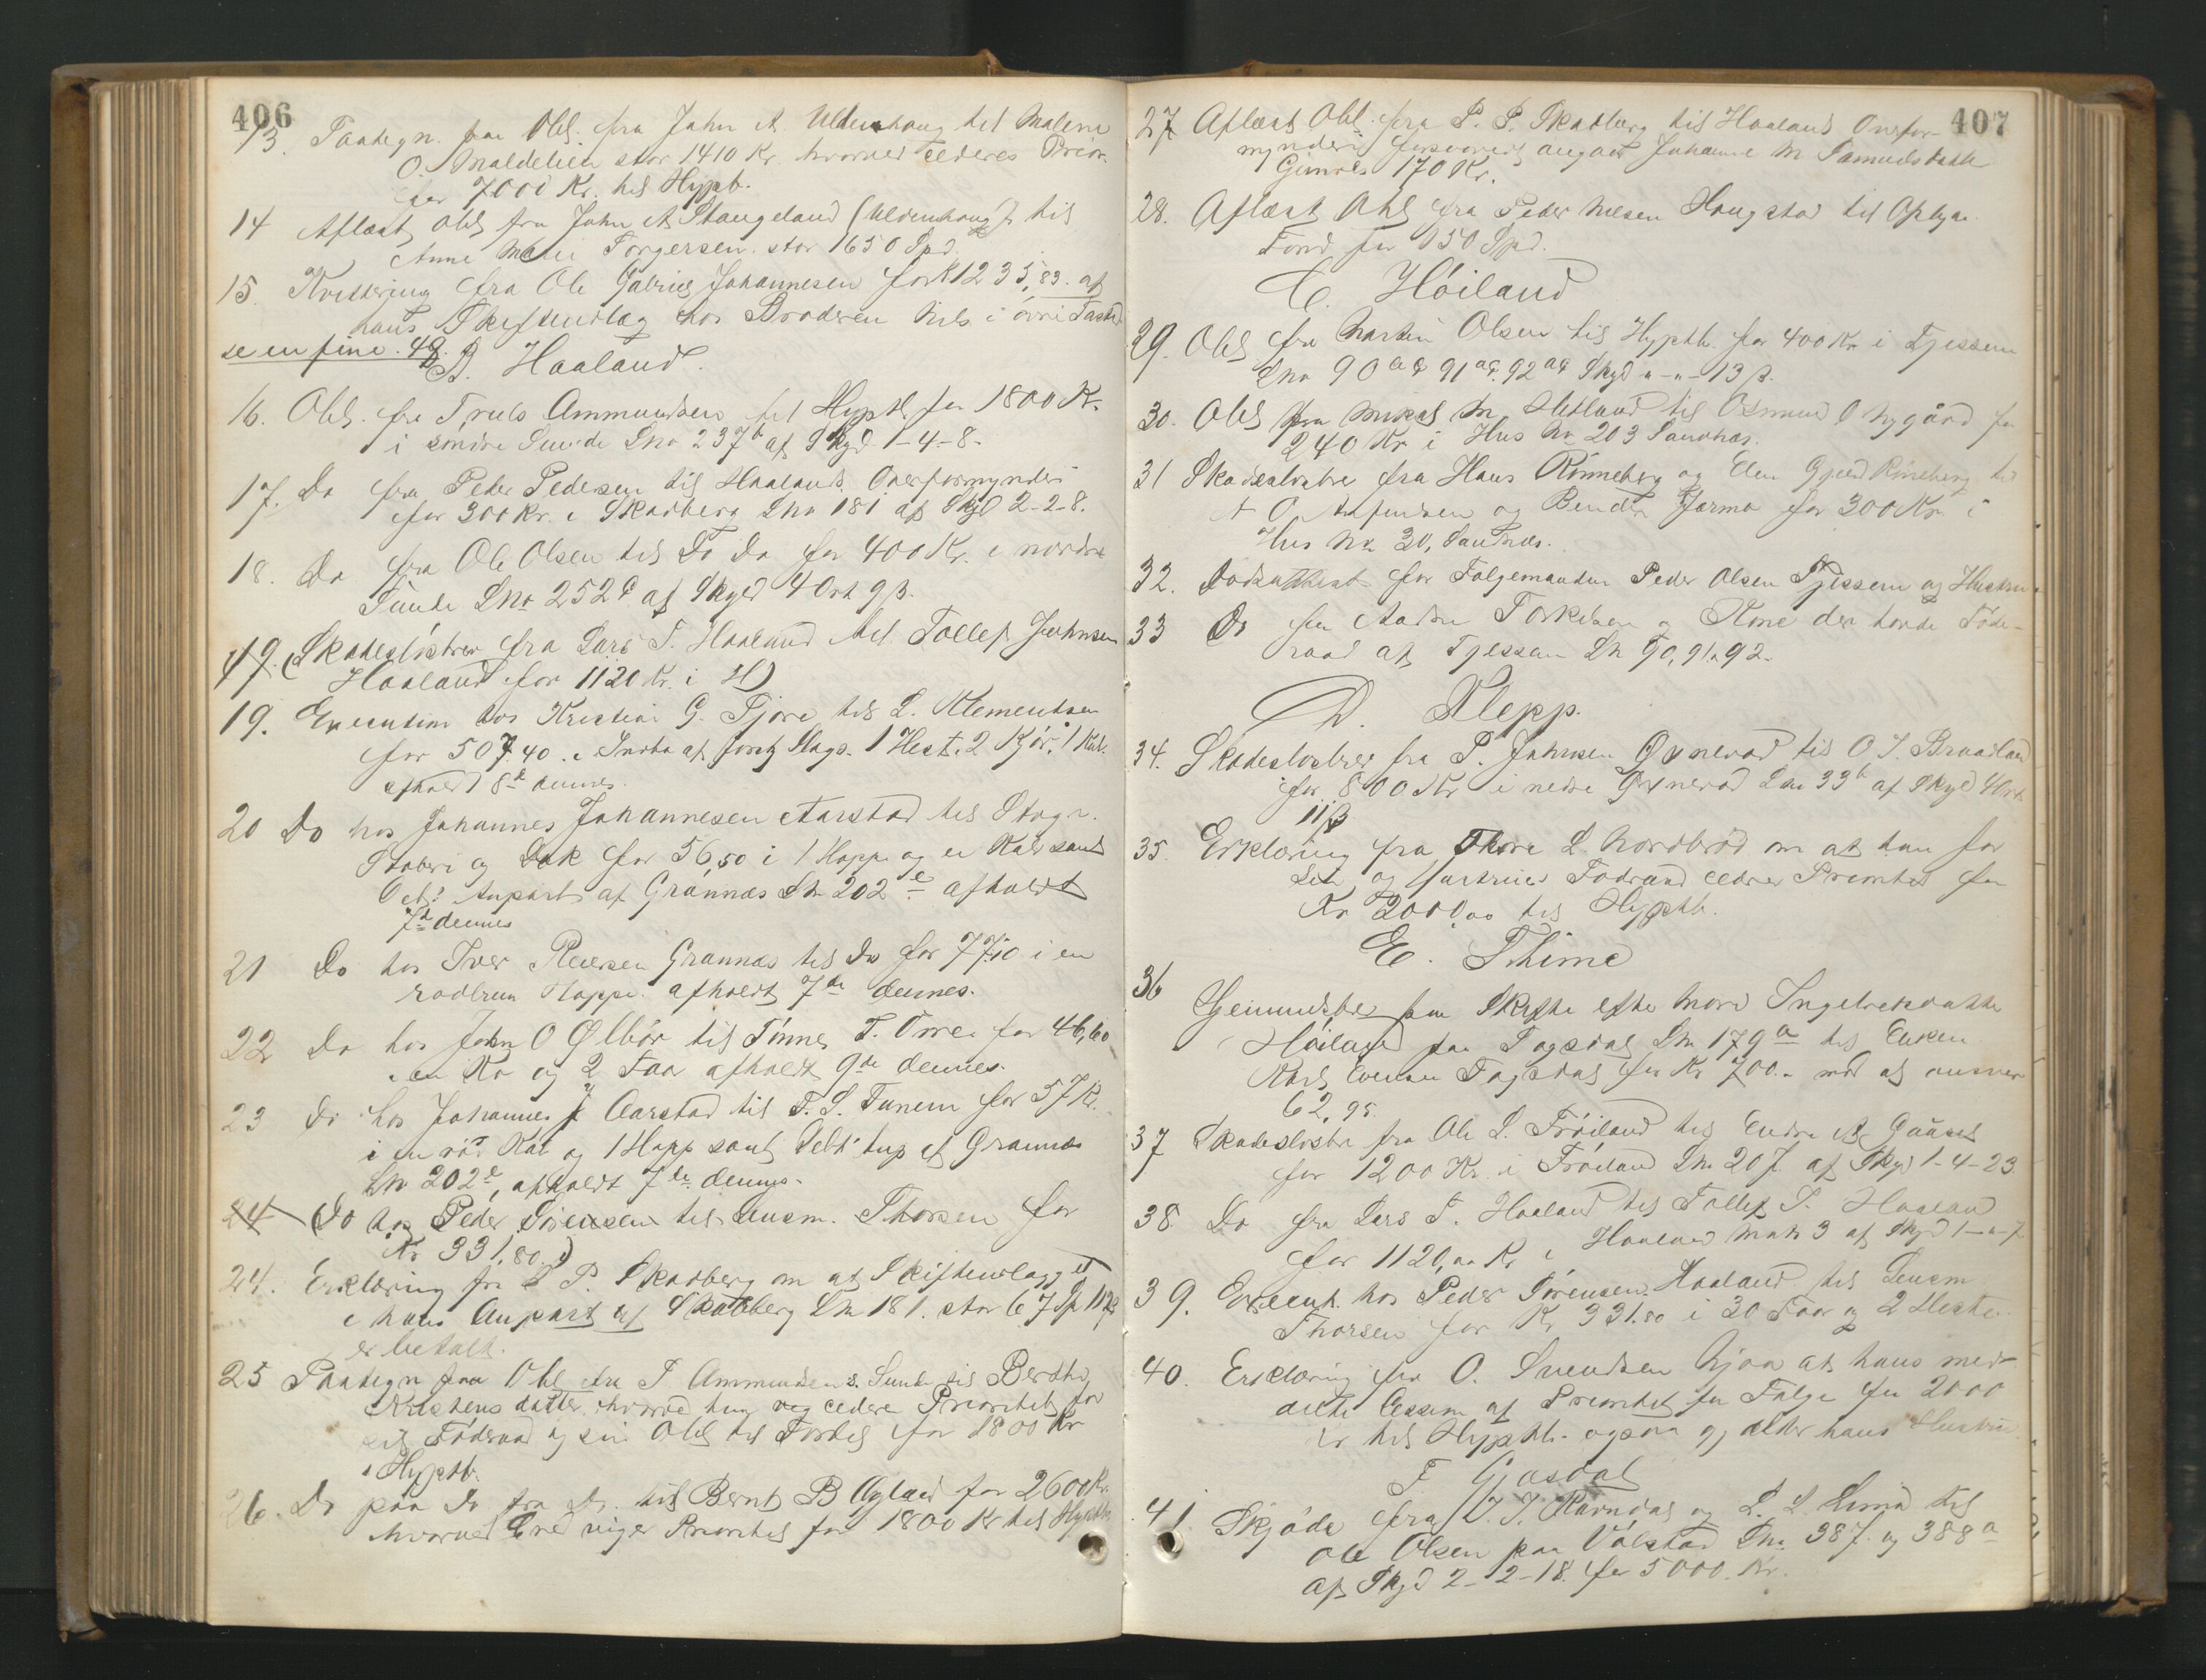 406
13. Paategn. paa Obl. fra John A. Uldenhaug til Malene
O. Maldelien stor 1410 Kr. hvorved cederes Prior.
for 7000 Kr. til Hypb.
14 Aflæst Obl. fra John A Stangeland (Uldenhaug) til
Anne Marie Torgersen. stor 1650 Spd.
15. Kvittering fra Ole Gabriel Johannesen for K 1235,83. af
hans Skifteudlæg hos Broderen Nils i øvre Tasted
se in fine. 42.
B. Haaland.
16. Obl. fra Truls Ammundsen til Hypth for 1800 Kr.
i søndre Sunde Lno 237 b af Skyld 1-4-8.
17. Do fra Peder Pedersen til Haalands Overformynderi
for 300 Kr. i Skadberg Lno 181 af Skyld 2-2-8.
18. Do fra Ole Olsen til Do Do for 400 Kr. i nordre
Sunde Lno 252 c af Skyld 4 Ort 9 ß.
19. (Skadesløsbrev fra Lars T. Haaland til Tollef Johnsen
Haaland for 1120 Kr. i H)
19. Execution hos Kristian G. Tjøre til L. Klementsen
for 507.40. i Indbo af forskj Slags. 1 Hest. 2 Kjør, 1 Kalv.
afholdt 8de dennes.
20 Do hos Johannes Johannesen Aarstad til Stvgr.
Stoberi og Dok for 56,50 i 1 Hoppe og en Kalv samt
Deb: Anpart af Grannæs Lno 202 e afholdt
7de dennes
21 Do hos Iver Pedersen Grannæs til Do for 77.10 i en
rødbrun Hoppe. afholdt 7de dennes.
22 Do hos John O Ølbør til Tønnes T. Orre for 46,60
i en Ko og 2 Faar afholdt 9de dennes.
23 Do hos Johannes J Aarstad til T. S. Tunem for 57 Kr.
i en rød Kalv og 1 Hopp samt Debt: Anp af Grannæs
Lno 202 e, afholdt 7de dennes.
24 (Do hos Peder Sørensen til Lensm. Thorsen for
Kr 331,80.)
24. Erklæring fra P P. Skadberg om at Skifteudlægget
i hans Anpart af Skadberg Lno 181. stor 67 Sp 112 ß
er betalt.
25 Paategn paa Obl fra T Ammundsen s. Sunde til Berthe
Kristensdatter hvorved hun veg cedere Prioritet for
sit Føderaad og sin Obl til Fordel for 1800 Kr
i Hypth.
26. Do paa Do fra Do. til Bernt B Øgland for 2600 Kr.
hvorved End viger Prioritet for 1800 Kr til Hypth
407
27 Aflæst Obl. fra P. P. Skadberg til Haalands Overfor-
mynderi angaar Johanne M Samuelsdatter
170 Kr.
28. Aflæst Obl fra Peder Nilsen Haugstad til Oplysn.
Fond for 150 Spd.
C. Høiland
29. Obl fra Martin Olsen til Hypth. for 400 Kr i Tjessem
Lno 90 ad 91 ad. 92 ad Skyld " - " - 13 ß.
30. Obl fra Mikal M. Hetland til Osmund O Nygård for
240 Kr i Hus No 203 Sandnæs.
31 Skadesløsbre fra Hans Rønneberg og Elen Gjerd Rønneberg til
og Bendt Jarma for 300 Kr i
Hus No. 30, Sandnæs.
32. Dødsattest for Følgemanden Peder Olsen Tjessem og Hustru.
33 Do for Torkelsen og Kone der havde Føde-
raad af Tjessem Ln 90, 91 & 92.
D. Klepp.
34. Skadesløsbrev fra P. Johnsen Øxnevad til O. J. Braatland
for 800 Kr i nedre Øxnevad Lno 33 b af Skyld 4 Ort
11 ß
35. Erklæring fra Thore L. Nordbrød om at han for
sit og Hustrues Fødraad cederer Prioritet for
Kr 2000,00 til Hypthb.
E. Thime
36
Hjemmelsbr paa Skifte efter Marie Ingebretsdatter
Høiland paa Tagsdal Lno 179 a til Enken
Tagsdal for Kr 700.- mod at
62,95.
37 Skadesløsbr fra Ole L. Frøiland til Endre A. Gaasel
for 1200 Kr. i Frøiland Lno 207 af Skyld 1-4-23.
38. Do fra Lars T. Haaland til Tollef J. Haaland
for 1120,00 Kr i Haaland Matr 3 af Skyld 1 - " - 7
39. Execut. hos Peder Sørensen Haaland til Lensm
Thorsen for Kr 331.80 i 30 Faar og 2 Heste
40. Erklæring fra O. Svendsen Njaa at hans med-
delte Cession af Prioritet for Følge for 2000
Kr til Hypthb. ogsaa gjælder hans Hustru.
F Gjesdal
41 Skjøde fra J. J. Ravndal og L. L. Lima til
Ole Olsen paa Vølstad Lno 387. og 388 a
af Skyld 2-2-18. for 5000. Kr.